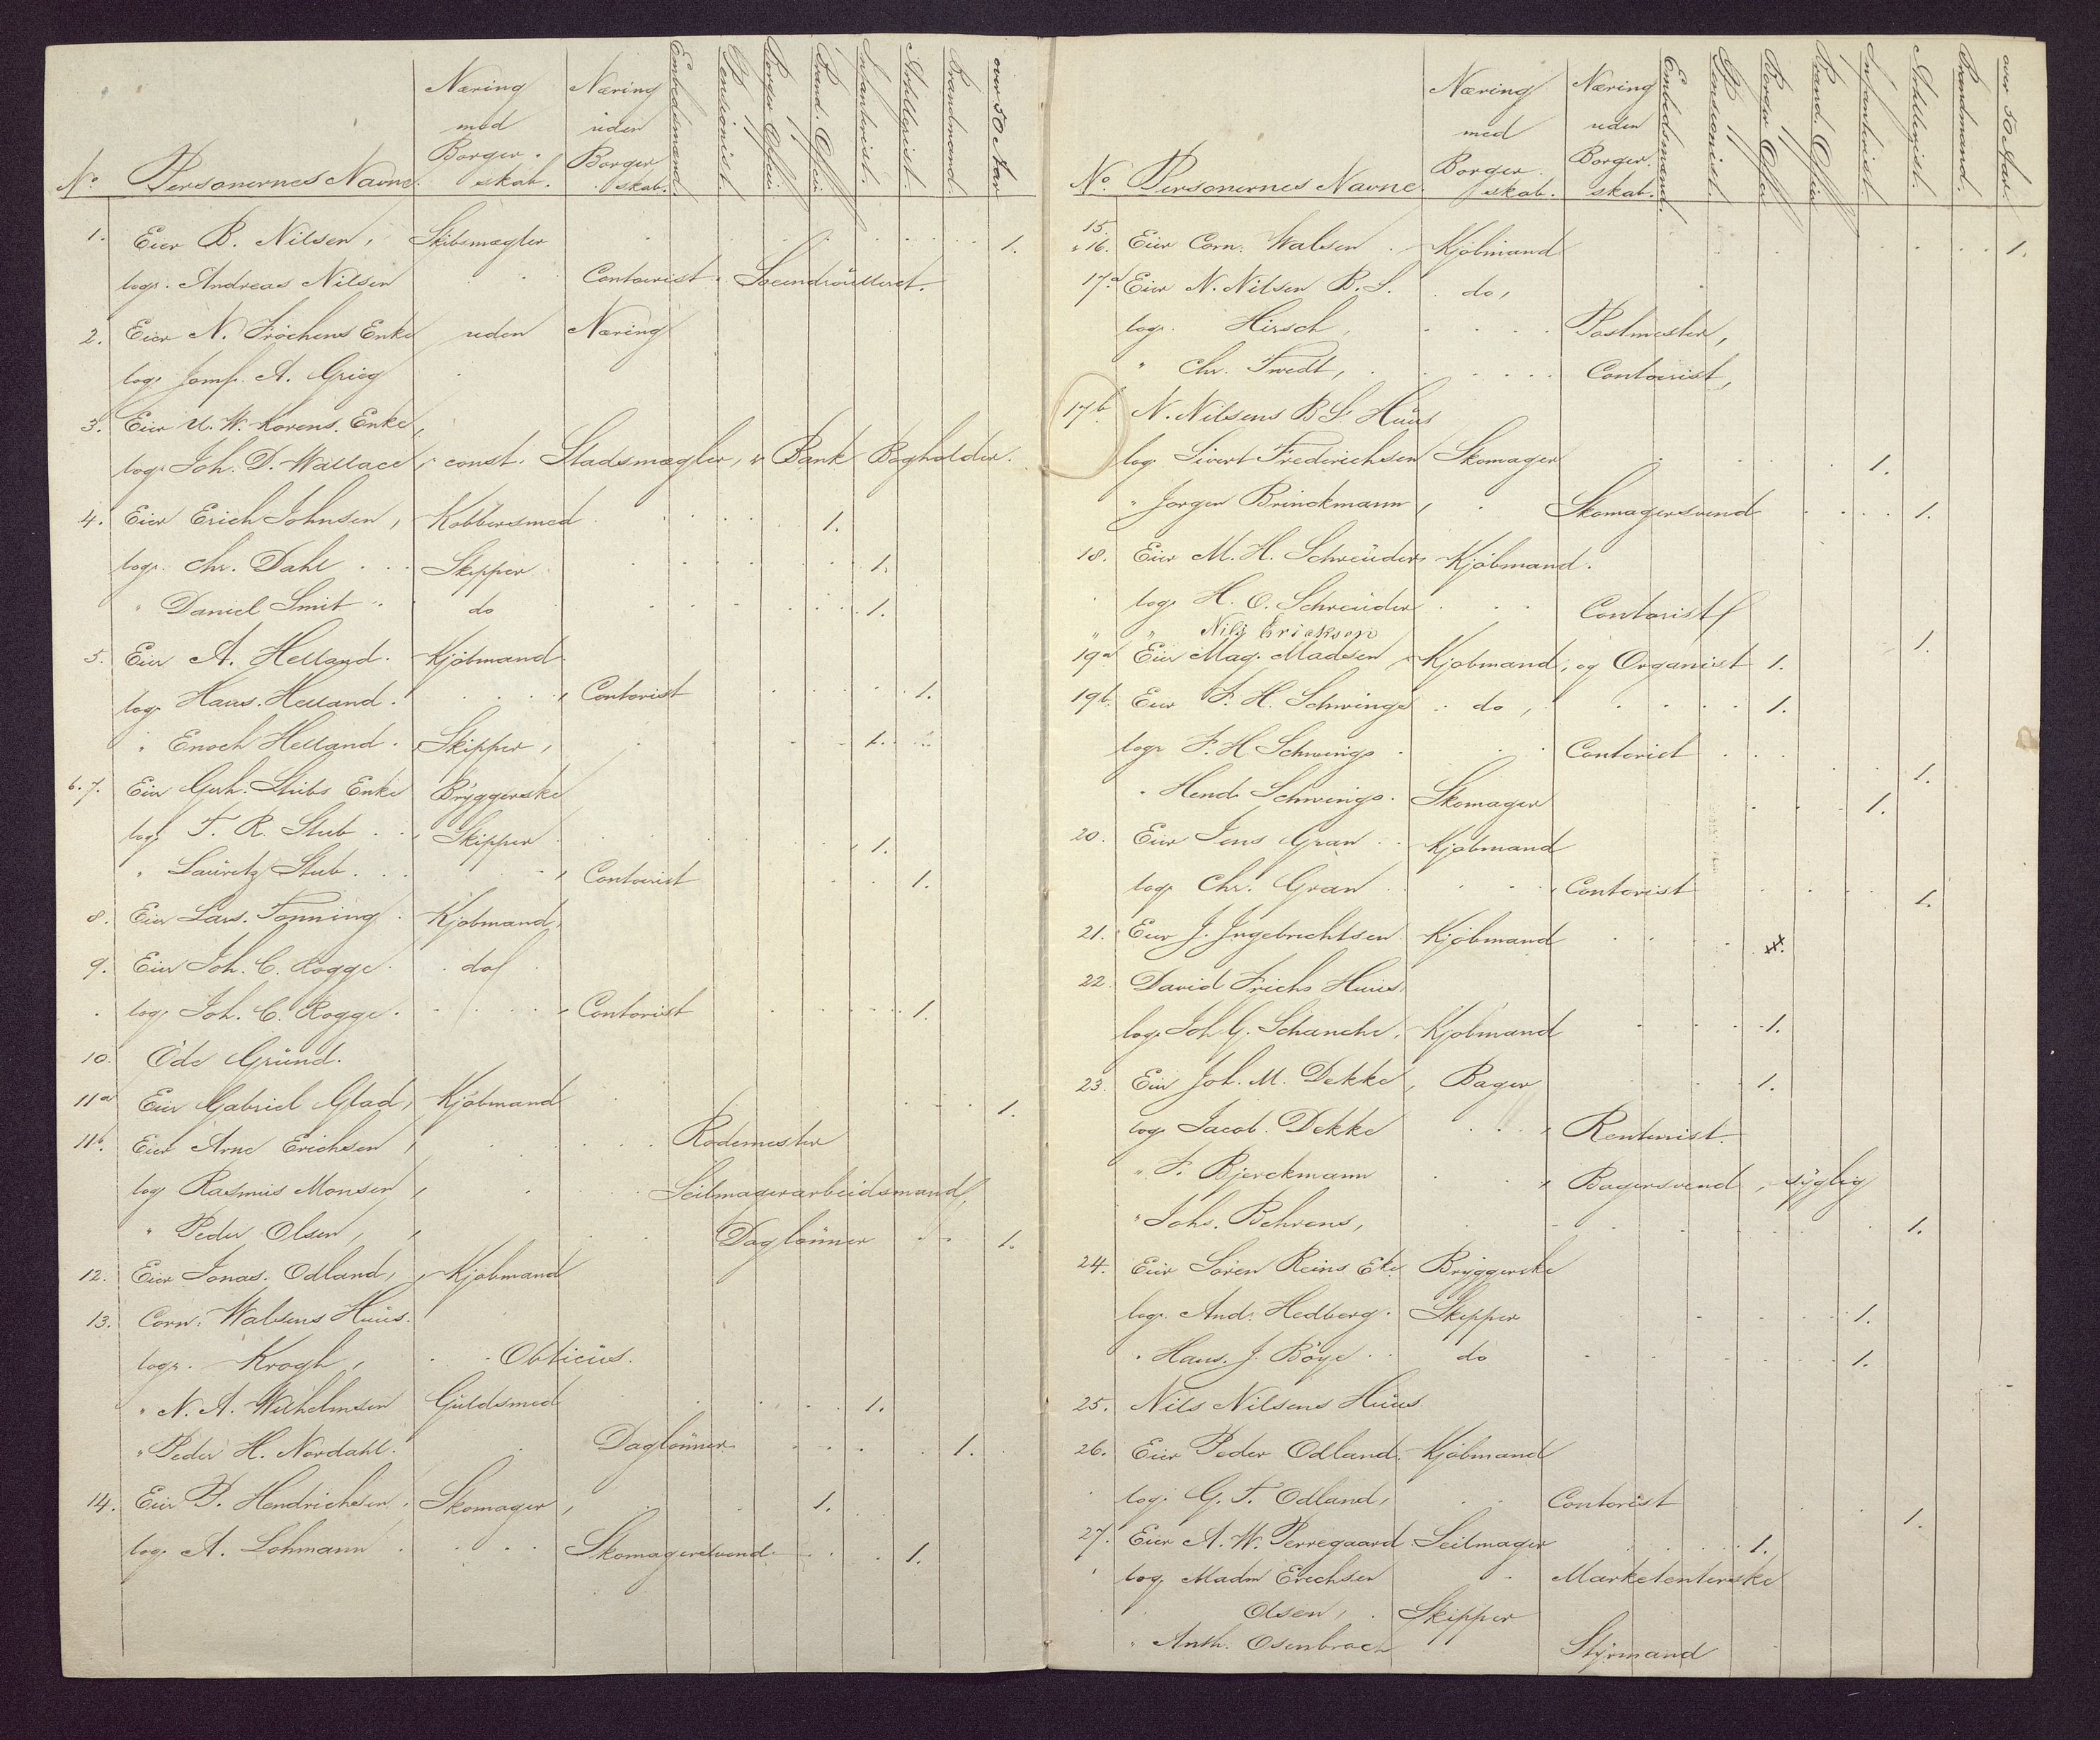 No. Personernes Navne. Næring med Borger-skab. Næring uden Borger-skab. Embedsmænd. Pensionist. Borger Officier Brand. Officier Infanterist. Artillerist. Brandmænd. over 50 Aar
1. Eier B. Nilsen, Skibsmægler 1.
log. Andreas Nilsen Contoirist
2. Eier N. Fröchens Enke uden Næring
log. Jomf. A. Grieg
3. Eier U. W. Korens. Enke,
log. Joh. D. Wallace, const. Stadsmægler, & Bank Bogholder.
4. Eier Erich Johnsen, Kobbersmed 1.
log. Chr. Dahl Skipper 1.
" Daniel Smit do 1.
5. Eier A. Helland. Kjöbmand
log. Hans. Helland. Contorist 1.
" Enoch Helland. Skipper, 1.
6. 7. Eier Gerh. Stubs Enke Bryggerske
log. F. R. Stub Skipper 1.
" Lauritz Stub. Contoirist 1.
8. Eier Lars. Fonning Kjöbmand,
9. Eier Joh. C. Rogge. do
log. Joh. C. Rogge. Contorist 1.
10. Öde Grund.
11a Eier Gabriel Glad, Kjöbmand 1.
11b. Eier Arne Erichsen, Rodemester
log Rasmus Monsen, Seilmagerarbeidsmand,
" Peder Olsen, Daglönner 1.
12. Eier Jonas. Odland, Kjöbmand
13. Corn. Walsens Huus.
logr. Krogh,
" N. A. Wilhelmsen Guldsmed 1.
" Peder H. Nordahl. Daglönner 1.
14. Eier P. Hendrichsen, Skomager, 1.
log. A. Lohmann Skomagersvend 1.
No. Personernes Navne. Næring med Borger-skab. Næring uden Borger-skab. Embedsmænd. Pensionist. Borger Officier Brand. Officier Infanterist. Artillerist. Brandmænd. over 50 Aar.
15. & 16. Eier Corn. Walsen Kjöbmand 1.
17.a Eier N. Nilsen B. S. do,
log. Hirsch, Postmester,
" Chr. Tvedt, Contoirist,
17b. N. Nilsens B S. Huus
log Sivert Frederichsen Skomager 1.
" Jorgen Brinckmann, Skomagersvend 1.
18. Eier M. H. Schreuder Kjöbmand.
log. H. O. Schreuder Contorist
" " Nils Erickson 1.
19a Eier Mag. Madsen Kjobmand, og Organist 1.
19b. Eier F. H. Schwings do, 1.
logr F. H. Schwings Contorist 1.
" Hend. Schwings. Skomager 1.
20. Eier Jens Gran Kjöbmand
log. Chr. Gran Contorist 1.
21. Eier J. Ingebrichtsen Kjöbmand
22. David Frichs Huus.
log. Joh G. Schanche, Kjöbmand 1.
23. Eier Joh. M. Dekke, Bager 1.
log. Jacob. Dekke Rentenist.
" F. Bjerckmann Bagersvend, syglig
" Johs. Behrens, 1.
24. Eier Sören Reins Eke Bryggerske
log. And. Hedberg. Skipper 1.
" Hans. J. Böye do 1.
25. Nils Nilsens Huus
26. Eier Peder Odland. Kjöbmand
log. G. F. Odland, Contorist 1.
27. Eier A. W. Perregaard Seilmager 1.
log. Madm Erechsen Marketenterske
Olsen, Skipper
" Anth. Osenbroch Styrmand